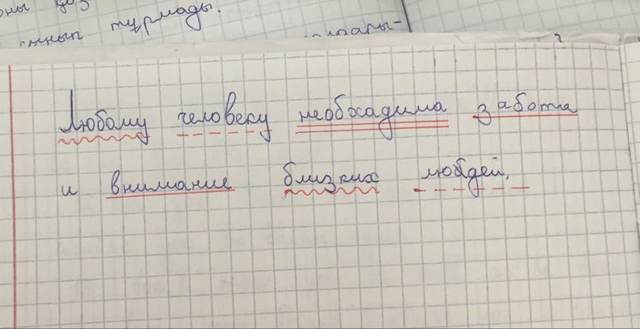 турмады.
Любому человеку необхадима забота
и внимание близких любдей.